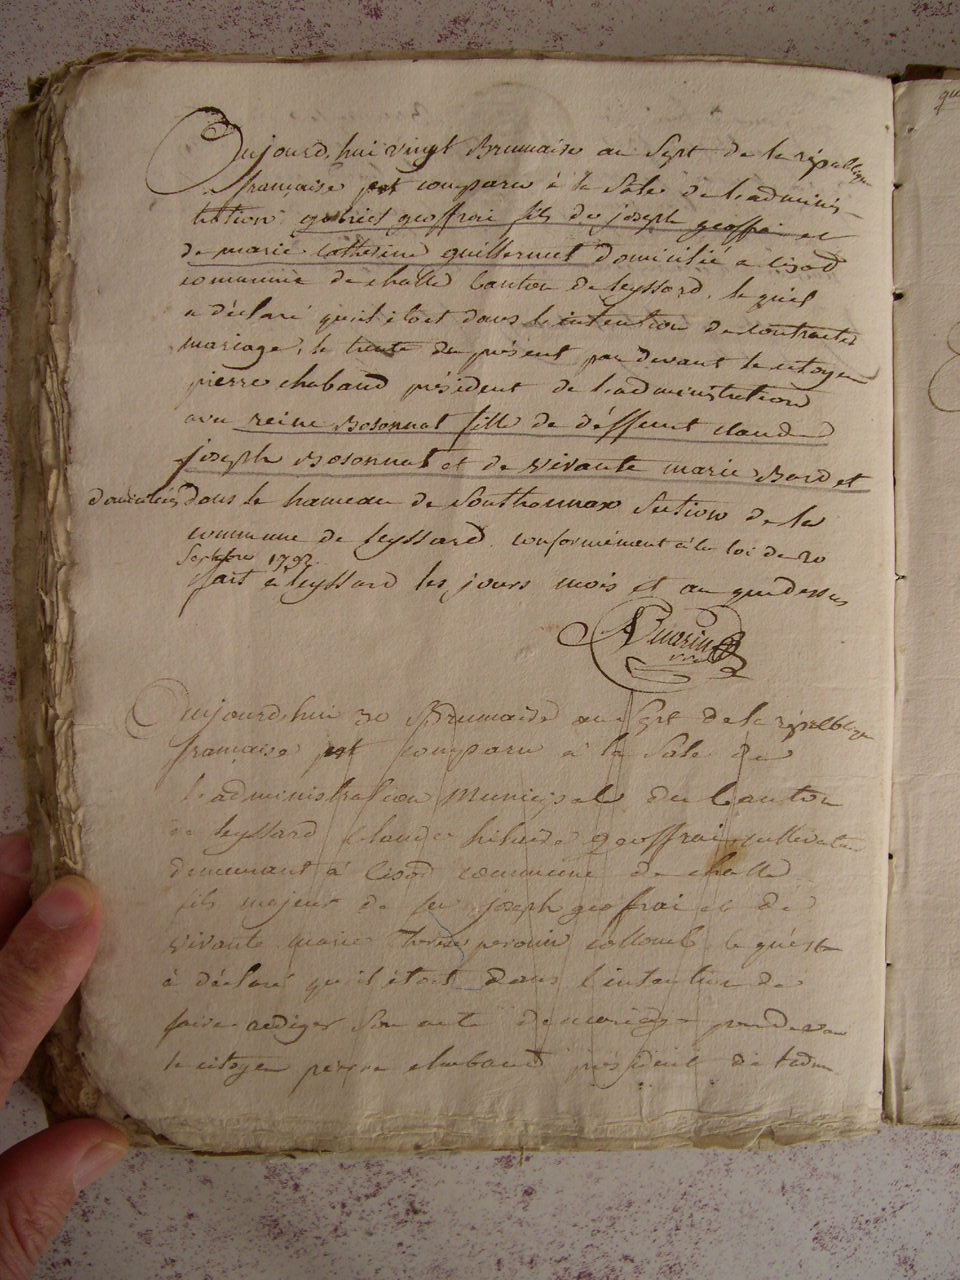 Aujourd'hui vingt Brumaire an Sept de la république
française est comparu à la Sale de l'adminis-
tration gabriel geoffrai fils de joseph geoffrai et
de marie catherine guillermet domicilié a Cisod
commune de challe Canton de leyssard, le quel
a déclaré qu'il étoit dans l'intention de contracter
mariage, le trente du présent par devant le citoyen
pierre chaband président de l'administration
avec reine Bosonnat fille de deffunt claude
joseph Bosonnat et de vivante marie Bard et
domiciliés dans le hameau de Southonnax Section de la
commune de leyssard, conformément à la loi de 20
Septbre 1792.
fait à leyssard les jours mois et an que dessus
Aujourd'hui 20 Brumaire an Sept de la républiqe
française est comparu à la Sale de
l'administration Municipal du Canton
de leyssard Claude geoffrai cultivateur
demeurant à Cisod commune de challe
fils majeur de feu joseph geoffrai et de
vivante marie therese collomb le quel
à déclaré qu'il étoit dans l'intention de
faire rediger Son acte de mariage par devan
le citoyen pierre chaband président de ladm